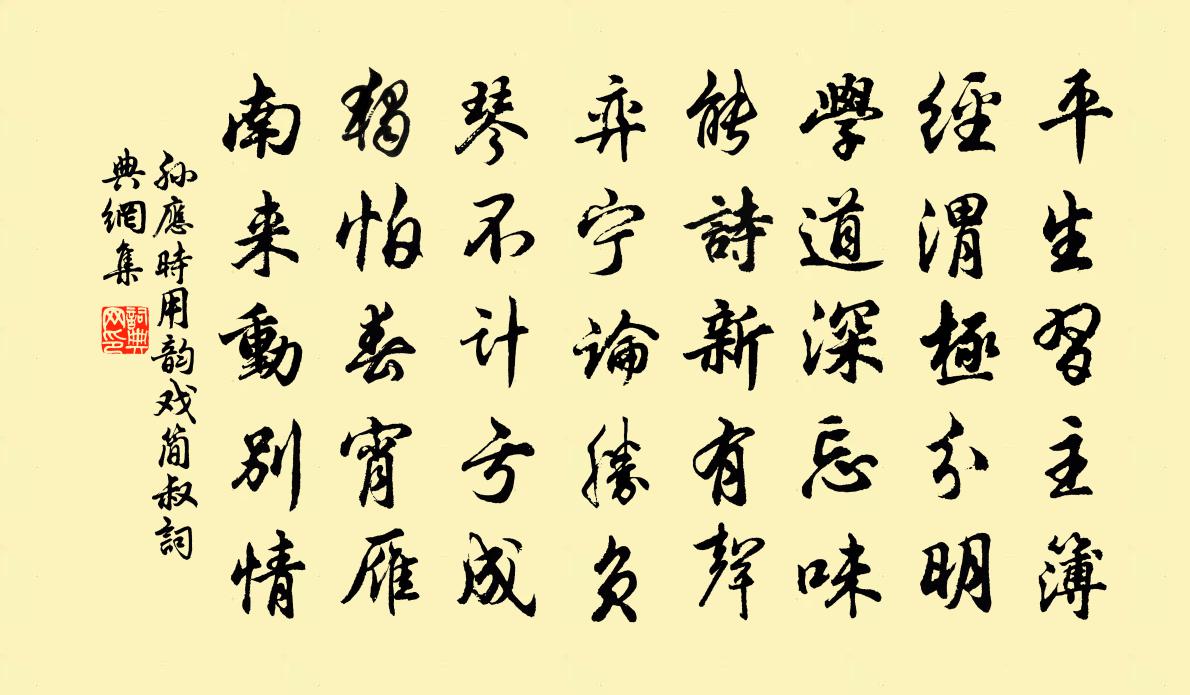 平生習主簿
經渭極分明
學道深忘味
能詩新有聲
弈宁論勝負
琴不计亏成
獨怕春宵雁
南来動別情
孙應時用韵戏简叔詞
典網集
詞典
网印